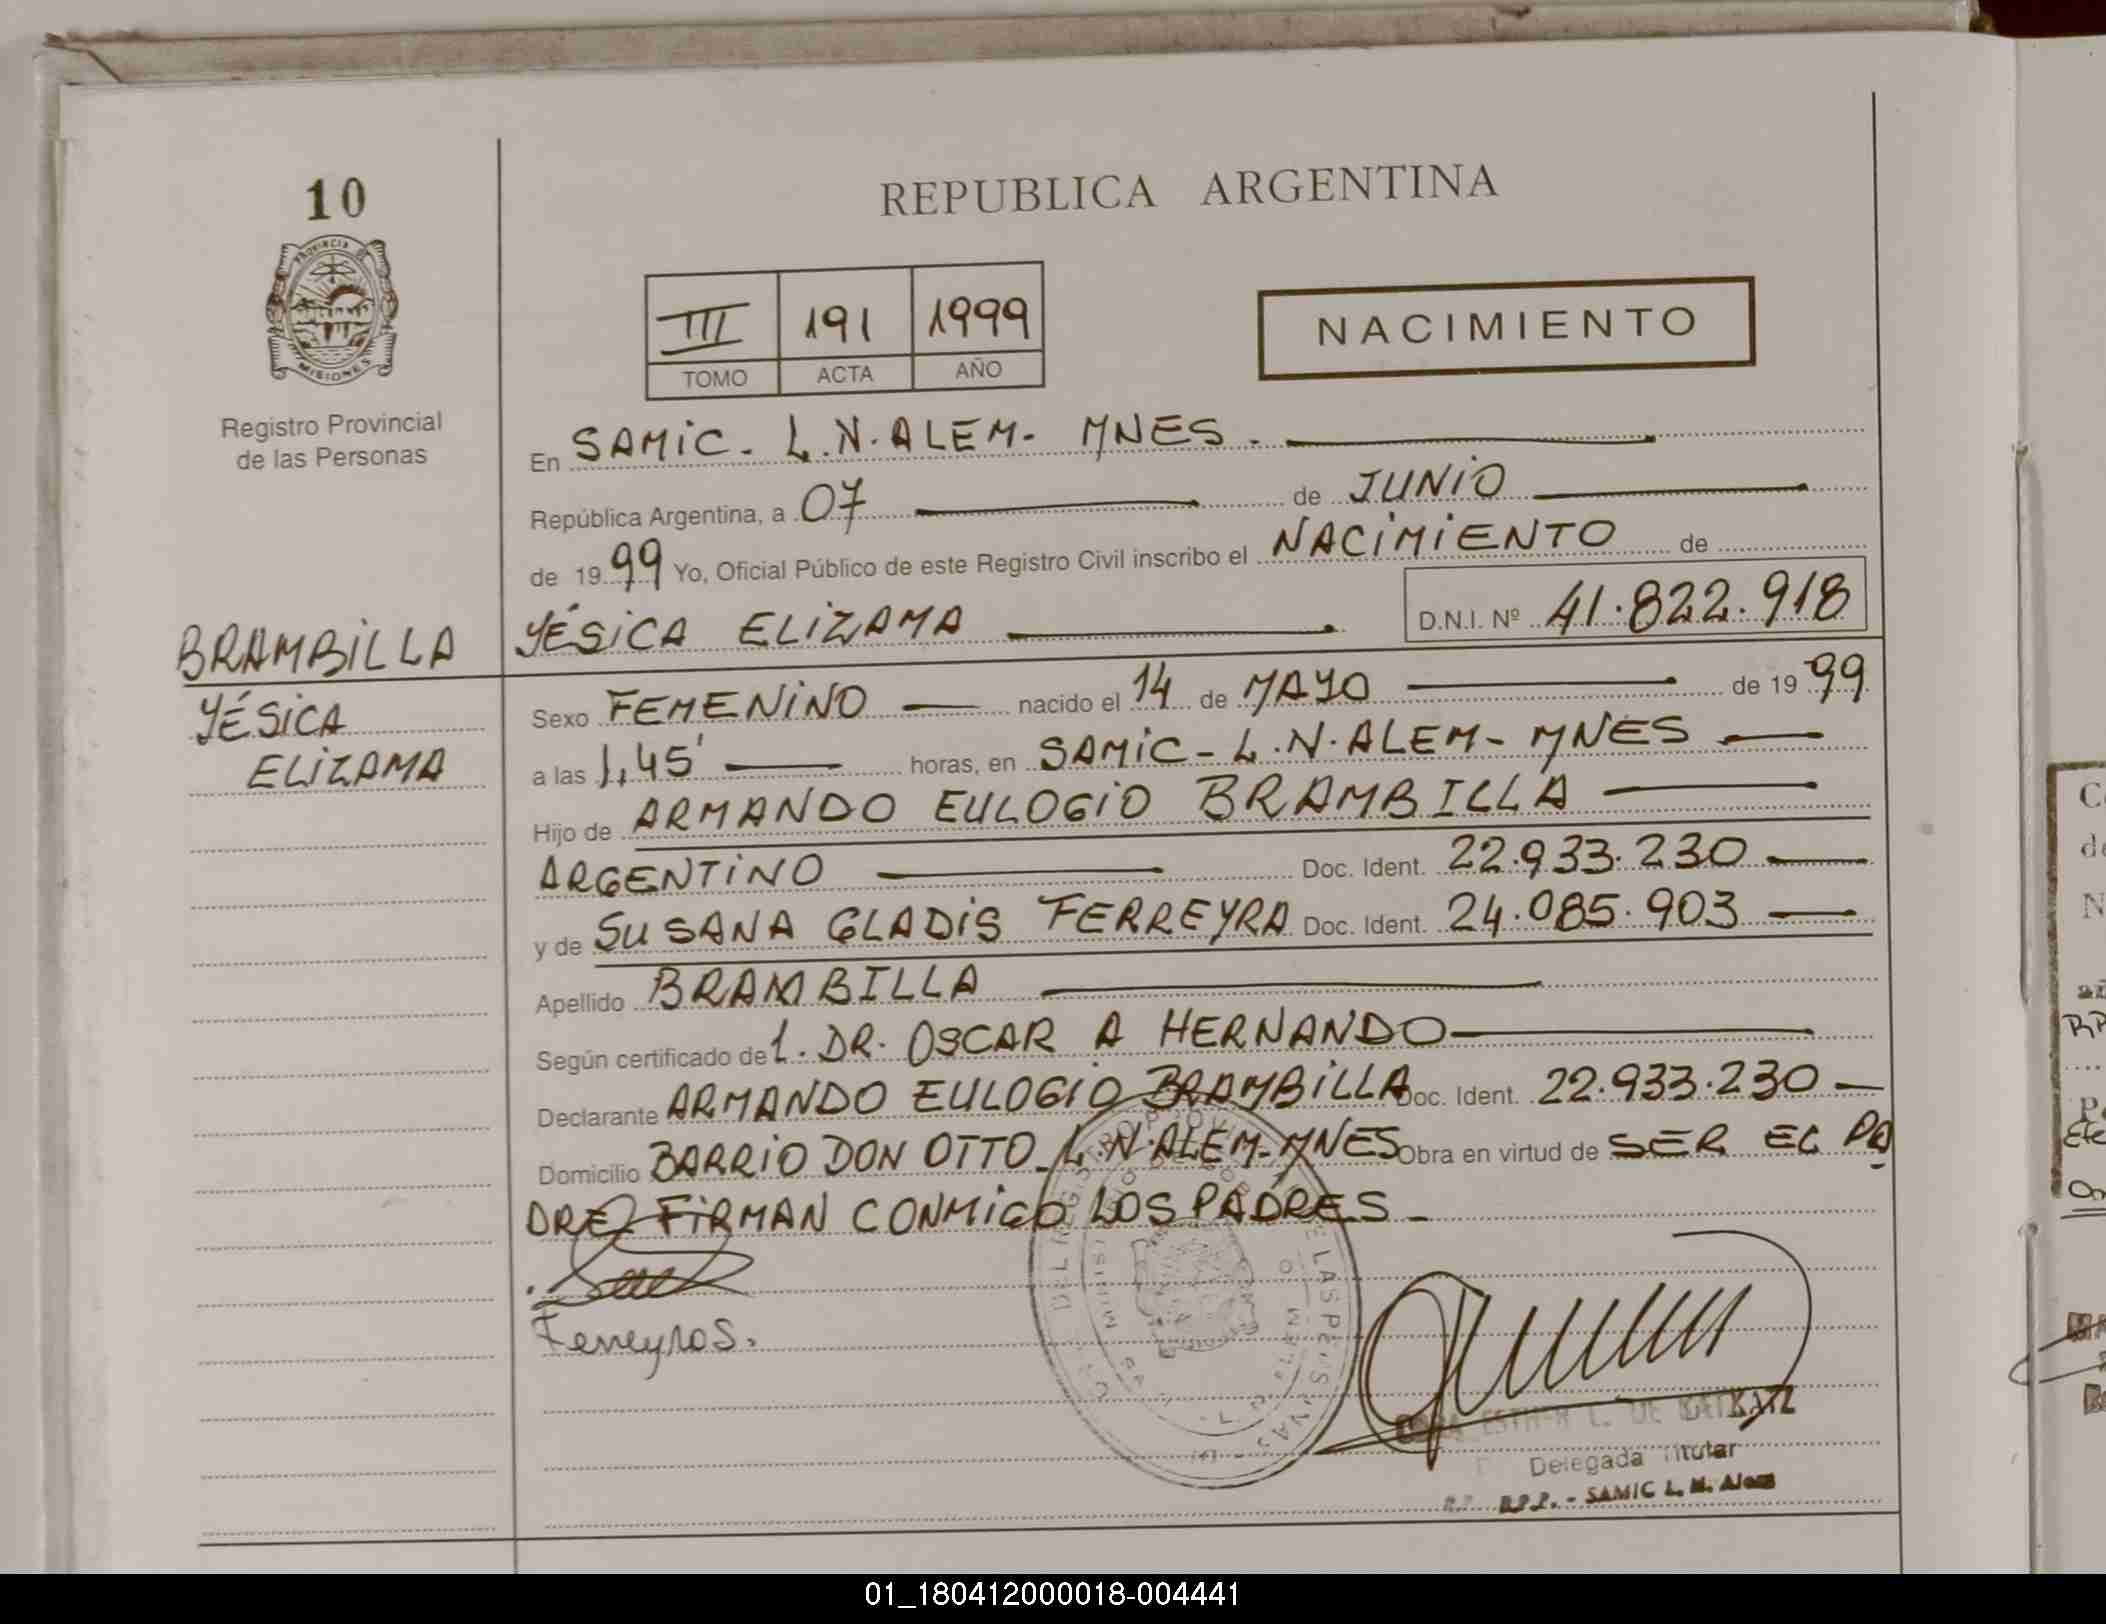 10
PROVINCIA DE
MISIONES
Registro Provincial
de las Personas
REPUBLICA ARGENTINA
III 191 1999
TOMO ACTA AÑO
NACIMIENTO
En SAMIC - L.N. ALEM - MNES -
República Argentina, a 07 de JUNIO
de 1999 Yo, Oficial Público de este Registro Civil inscribo el NACIMIENTO de
YÉSICA ELIZAMA D.N.I. Nº 41.822.918
BRAMBILLA
YÉSICA
ELIZAMA
Sexo FEMENINO nacido el 14 de MAYO de 1999
a las 1,45' horas, en SAMIC - L.N. ALEM - MNES
Hijo de ARMANDO EULOGIO BRAMBILLA
ARGENTINO Doc. Ident. 22.933.230
y de SUSANA GLADIS FERREYRA Doc. Ident. 24.085.903
Apellido BRAMBILLA
Según certificado de 1. DR. OSCAR A HERNANDO
Declarante ARMANDO EULOGIO BRAMBILLA Doc. Ident. 22.933.230
Domicilio BARRIO DON OTTO - L.N. ALEM - MNES Obra en virtud de SER EL PA
DRE FIRMAN CONMIGO LOS PADRES -
Ferreyra S.
ESTHER L. DE
Delegada Titular
R.P.P. - SAMIC L. N. Alem
01_180412000018-004441